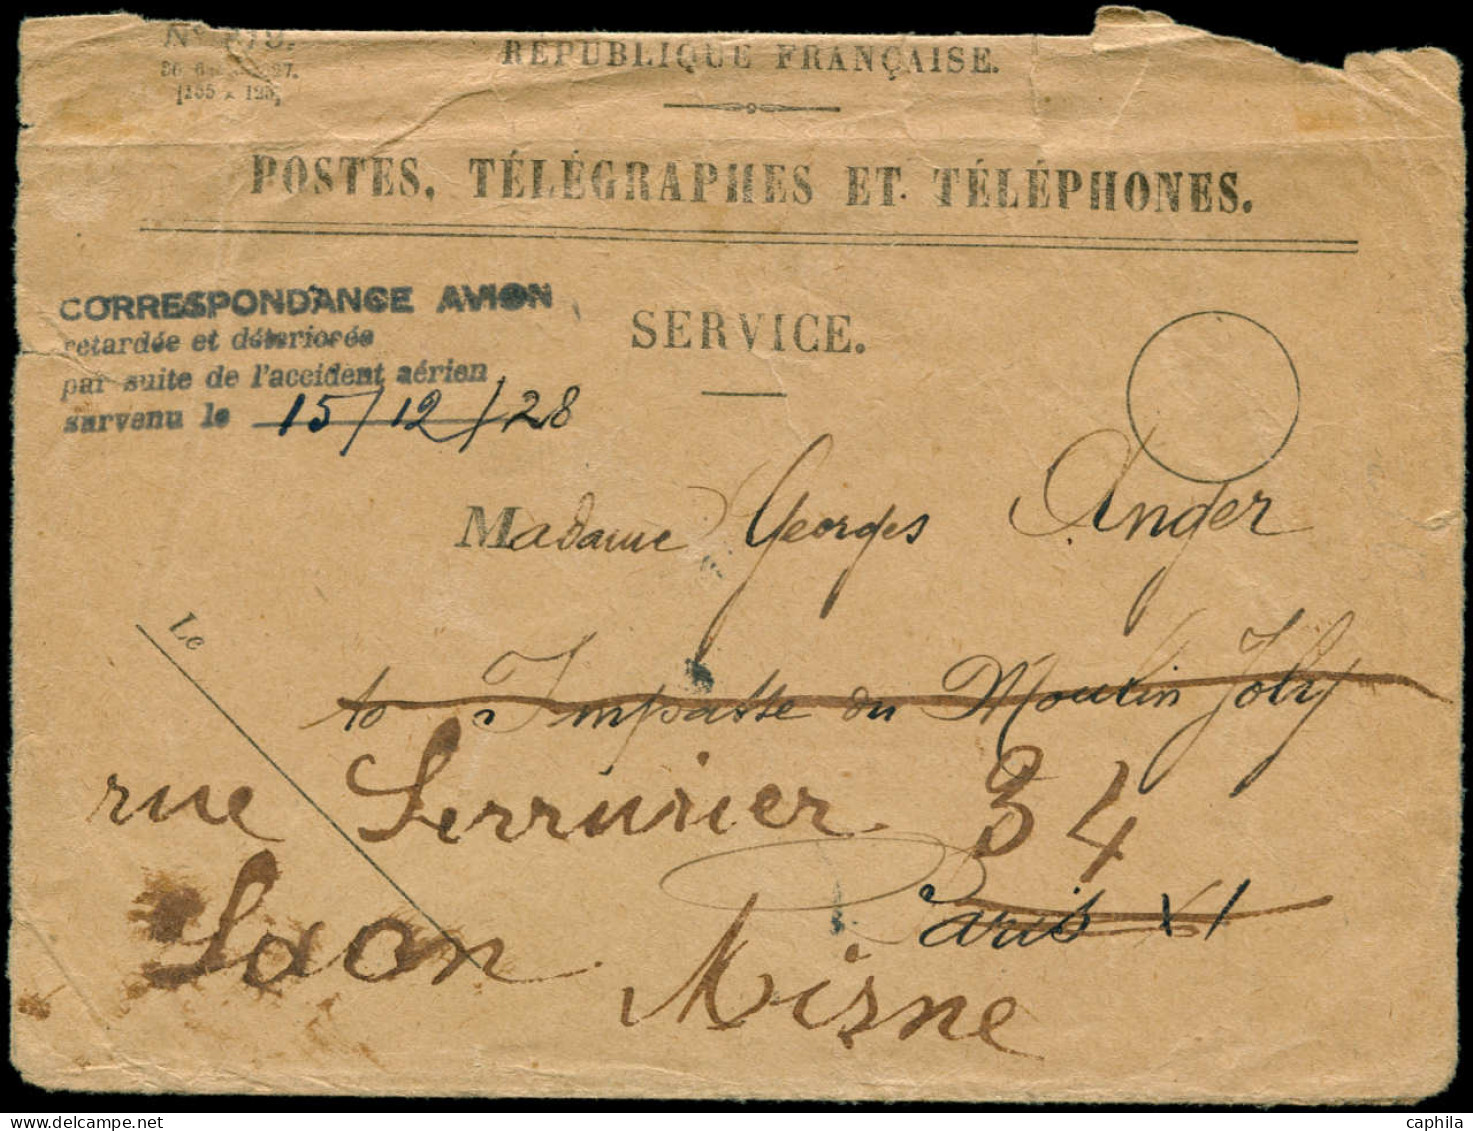 RÉPUBLIQUE FRANÇAISE.
[155 x 125]
POSTES, TÉLÉGRAPHES ET TÉLÉPHONES.
CORRESPONDANCE AVION
retardée et déteriorée
par suite de l'accident aérien
survenu le 15/12/28
SERVICE.
Madame Georges Anger
Le
10 Impasse du Moulin Joly
rue Serrurier 34
Paris XI
Laon Aisne
caphila